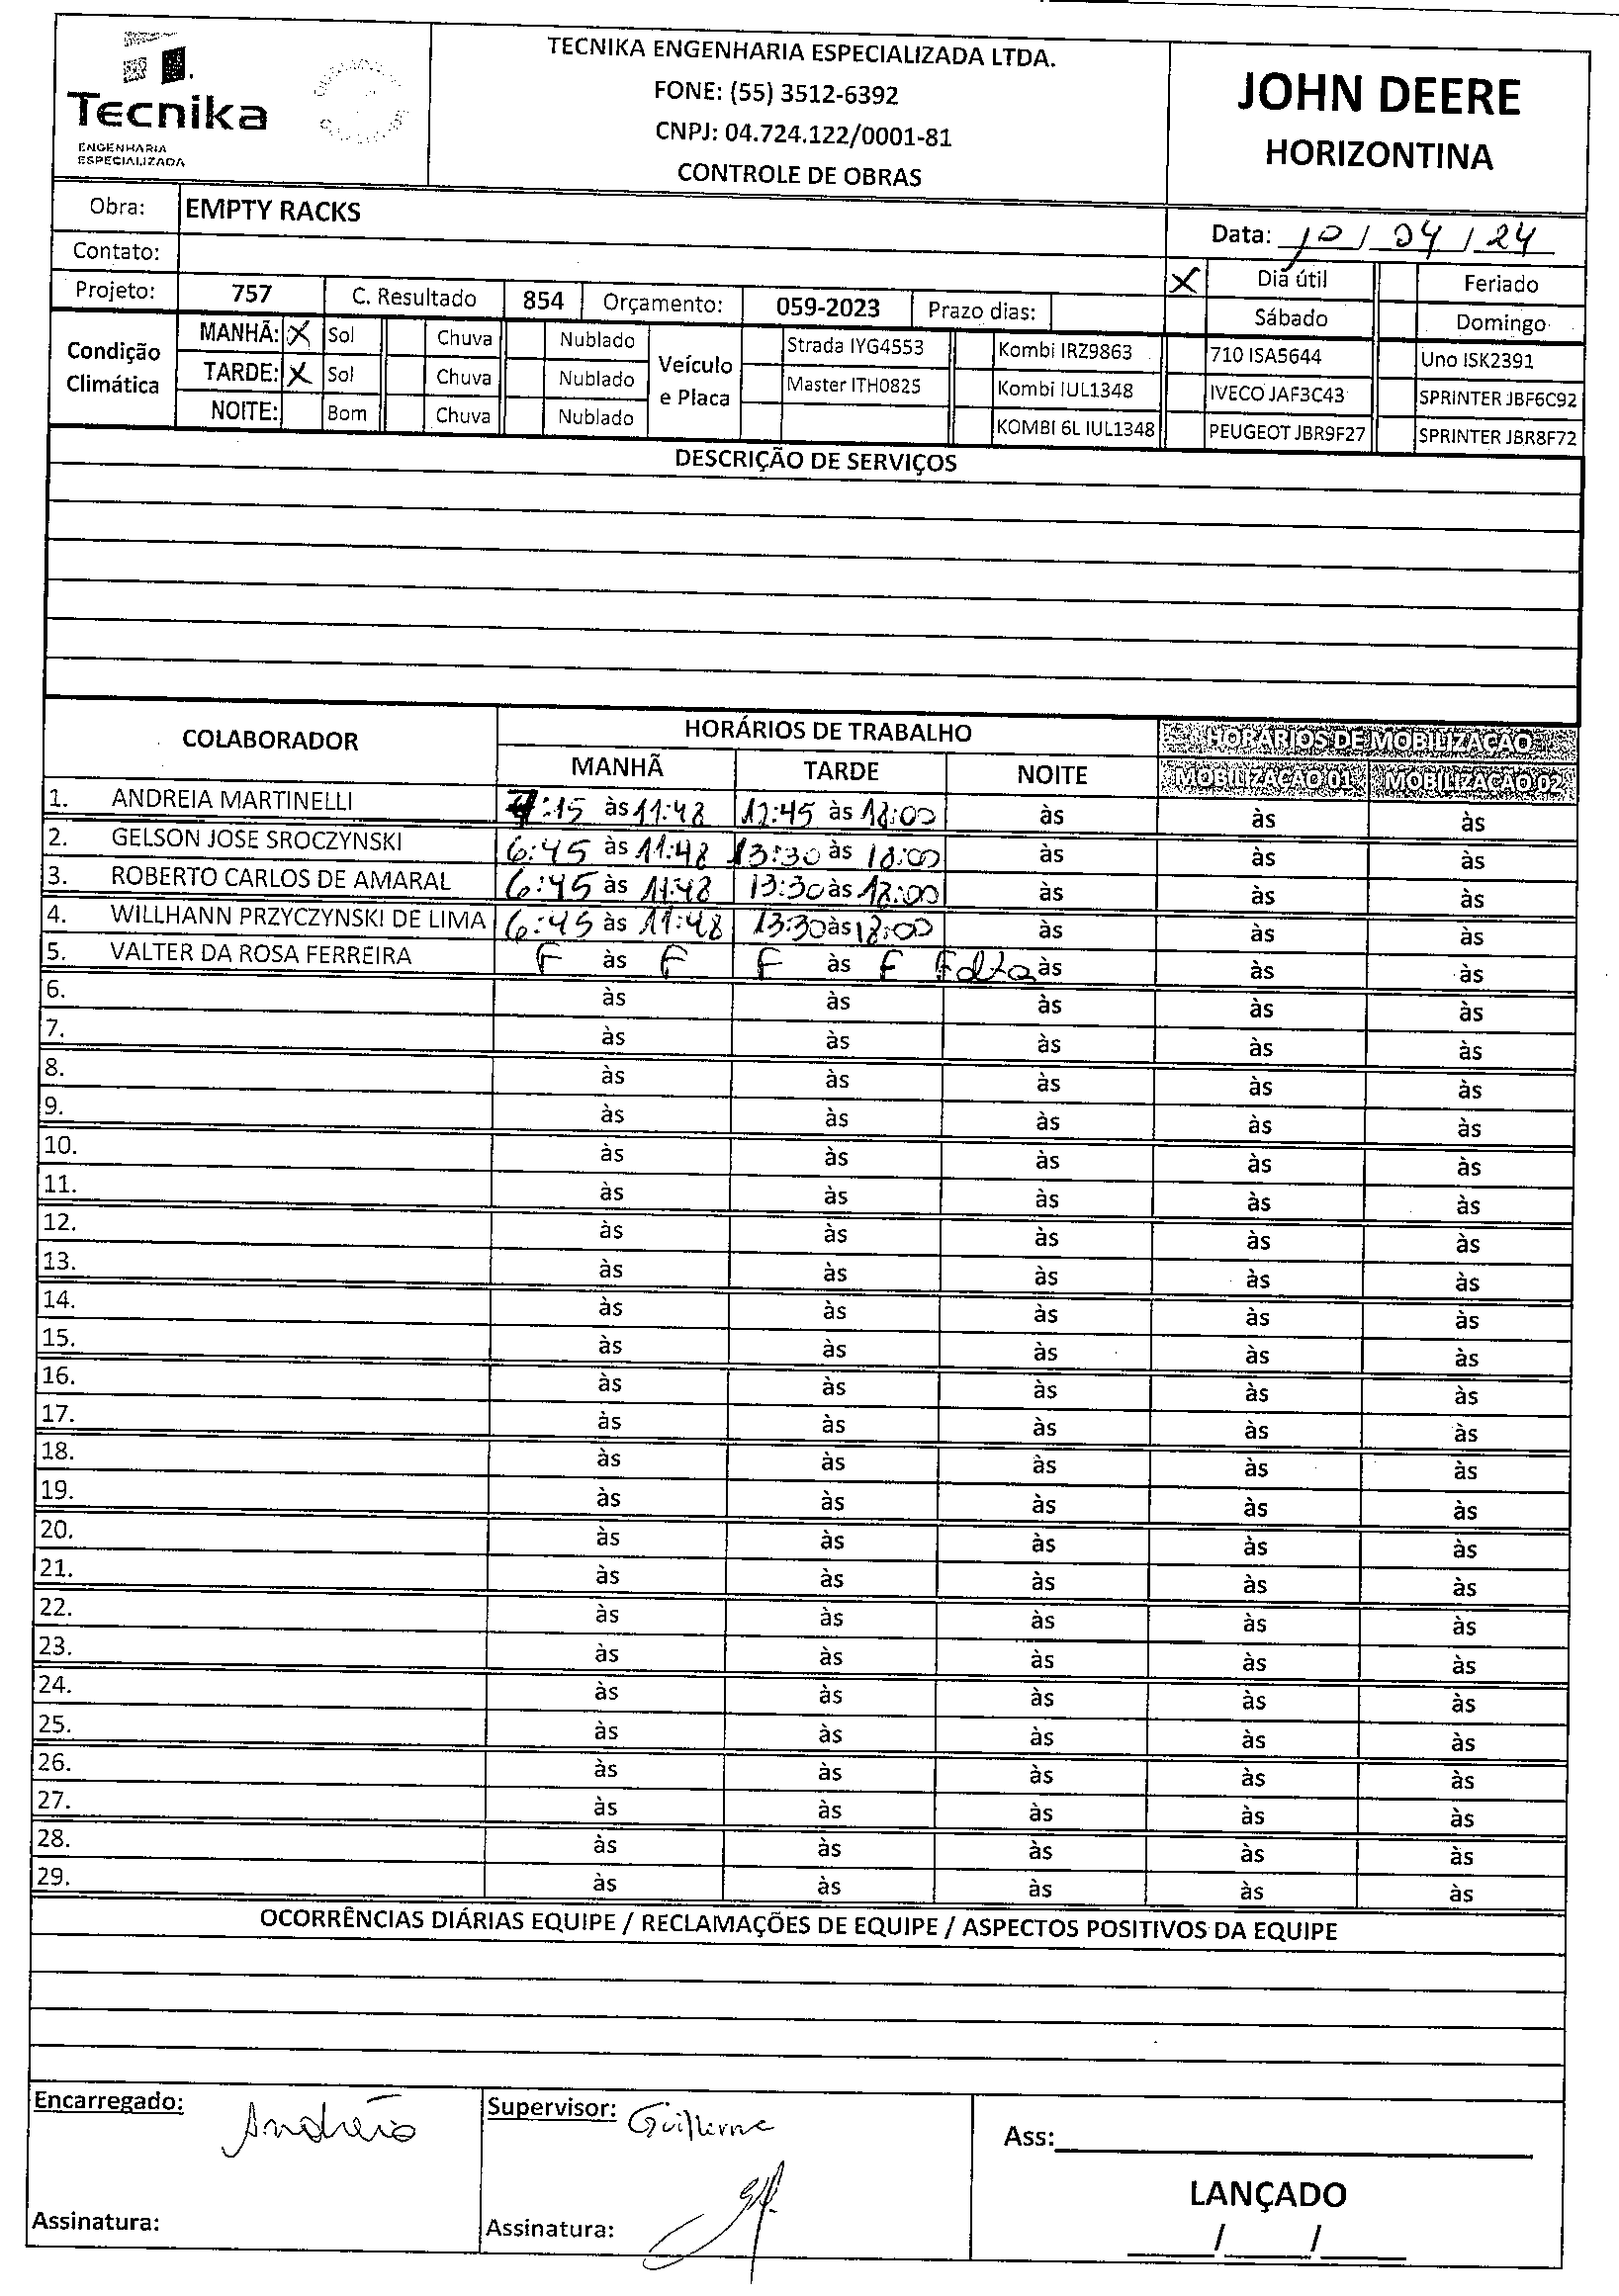 Tecnika
ENGENHARIA
ESPECIALIZADA
TECNIKA ENGENHARIA ESPECIALIZADA LTDA.
FONE: (55) 3512-6392
CNPJ: 04.724.122/0001-81
CONTROLE DE OBRAS
JOHN DEERE
HORIZONTINA
Obra: EMPTY RACKS
Data: 10 / 04 / 24
Contato:
X Dia útil Feriado
Projeto: 757 C. Resultado 854 Orçamento: 059-2023 Prazo dias:
Sábado Domingo
Condição Climática
MANHÃ: X Sol Chuva Nublado
TARDE: X Sol Chuva Nublado
NOITE: Bom Chuva Nublado
Veículo e Placa
Strada IYG4553 Kombi IRZ9863 710 ISA5644 Uno ISK2391
Master ITH0825 Kombi IUL1348 IVECO JAF3C43 SPRINTER JBF6C92
KOMBI 6L IUL1348 PEUGEOT JBR9F27 SPRINTER JBR8F72
DESCRIÇÃO DE SERVIÇOS
COLABORADOR HORÁRIOS DE TRABALHO HORÁRIOS DE MOBILIZAÇÃO
MANHÃ TARDE NOITE MOBILIZAÇÃO 01 MOBILIZAÇÃO 02
1. ANDREIA MARTINELLI 7:15 às 11:48 12:45 às 18:00 às às às
2. GELSON JOSE SROCZYNSKI 6:45 às 11:48 13:30 às 18:00 às às às
3. ROBERTO CARLOS DE AMARAL 6:45 às 11:48 13:30 às 18:00 às às às
4. WILLHANN PRZYCZYNSKI DE LIMA 6:45 às 11:48 13:30 às 18:00 às às às
5. VALTER DA ROSA FERREIRA F às F F às F Falta às às às
6. às às às às às
7. às às às às às
8. às às às às às
9. às às às às às
10. às às às às às
11. às às às às às
12. às às às às às
13. às às às às às
14. às às às às às
15. às às às às às
16. às às às às às
17. às às às às às
18. às às às às às
19. às às às às às
20. às às às às às
21. às às às às às
22. às às às às às
23. às às às às às
24. às às às às às
25. às às às às às
26. às às às às às
27. às às às às às
28. às às às às às
29. às às às às às
OCORRÊNCIAS DIÁRIAS EQUIPE / RECLAMAÇÕES DE EQUIPE / ASPECTOS POSITIVOS DA EQUIPE
Encarregado: Andréia
Supervisor: Guilherme
Ass:
LANÇADO
Assinatura:
Assinatura:
/ /